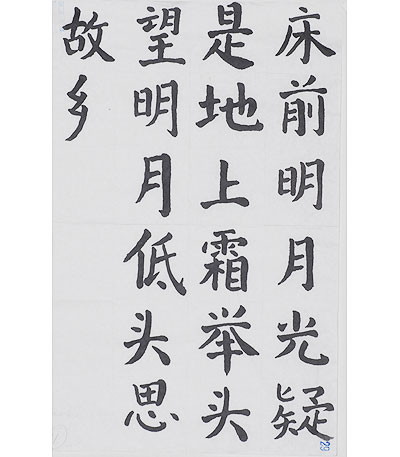 床前明月光疑
是地上霜举头
望明月低头思
故乡
29